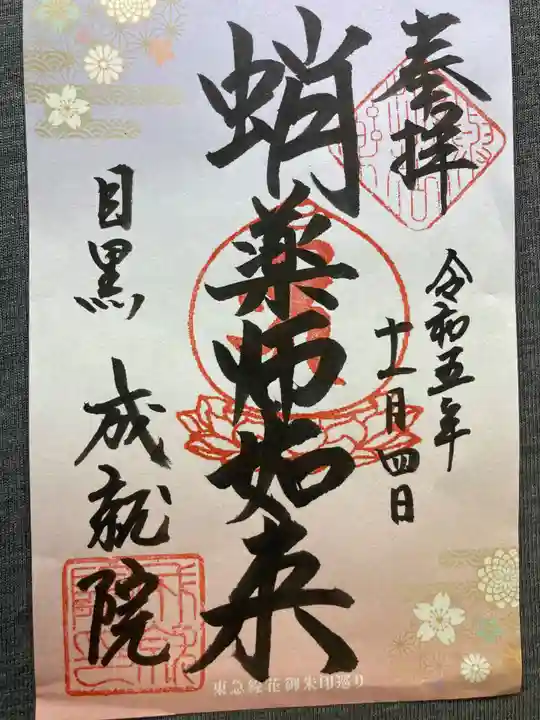 奉拝
令和五年
十一月四日
蛸薬師如来
目黒 成就院
東急線花御朱印巡り